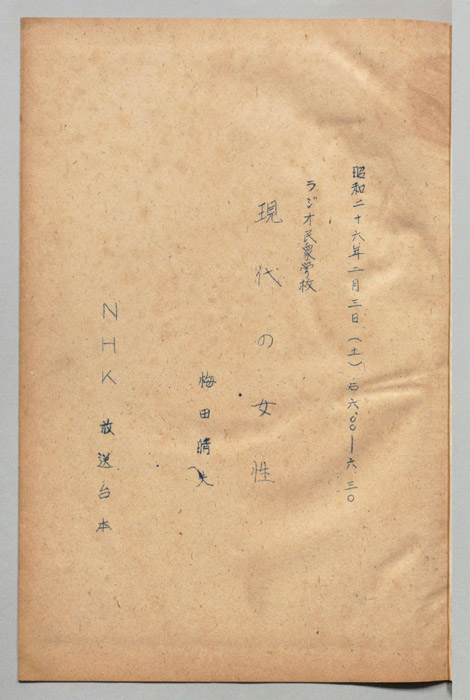 昭和二十六年二月三日(土)后六.〇〇―六.三〇
ラジオ民衆学校
現代の女性
梅田晴夫
NHK 放送台本